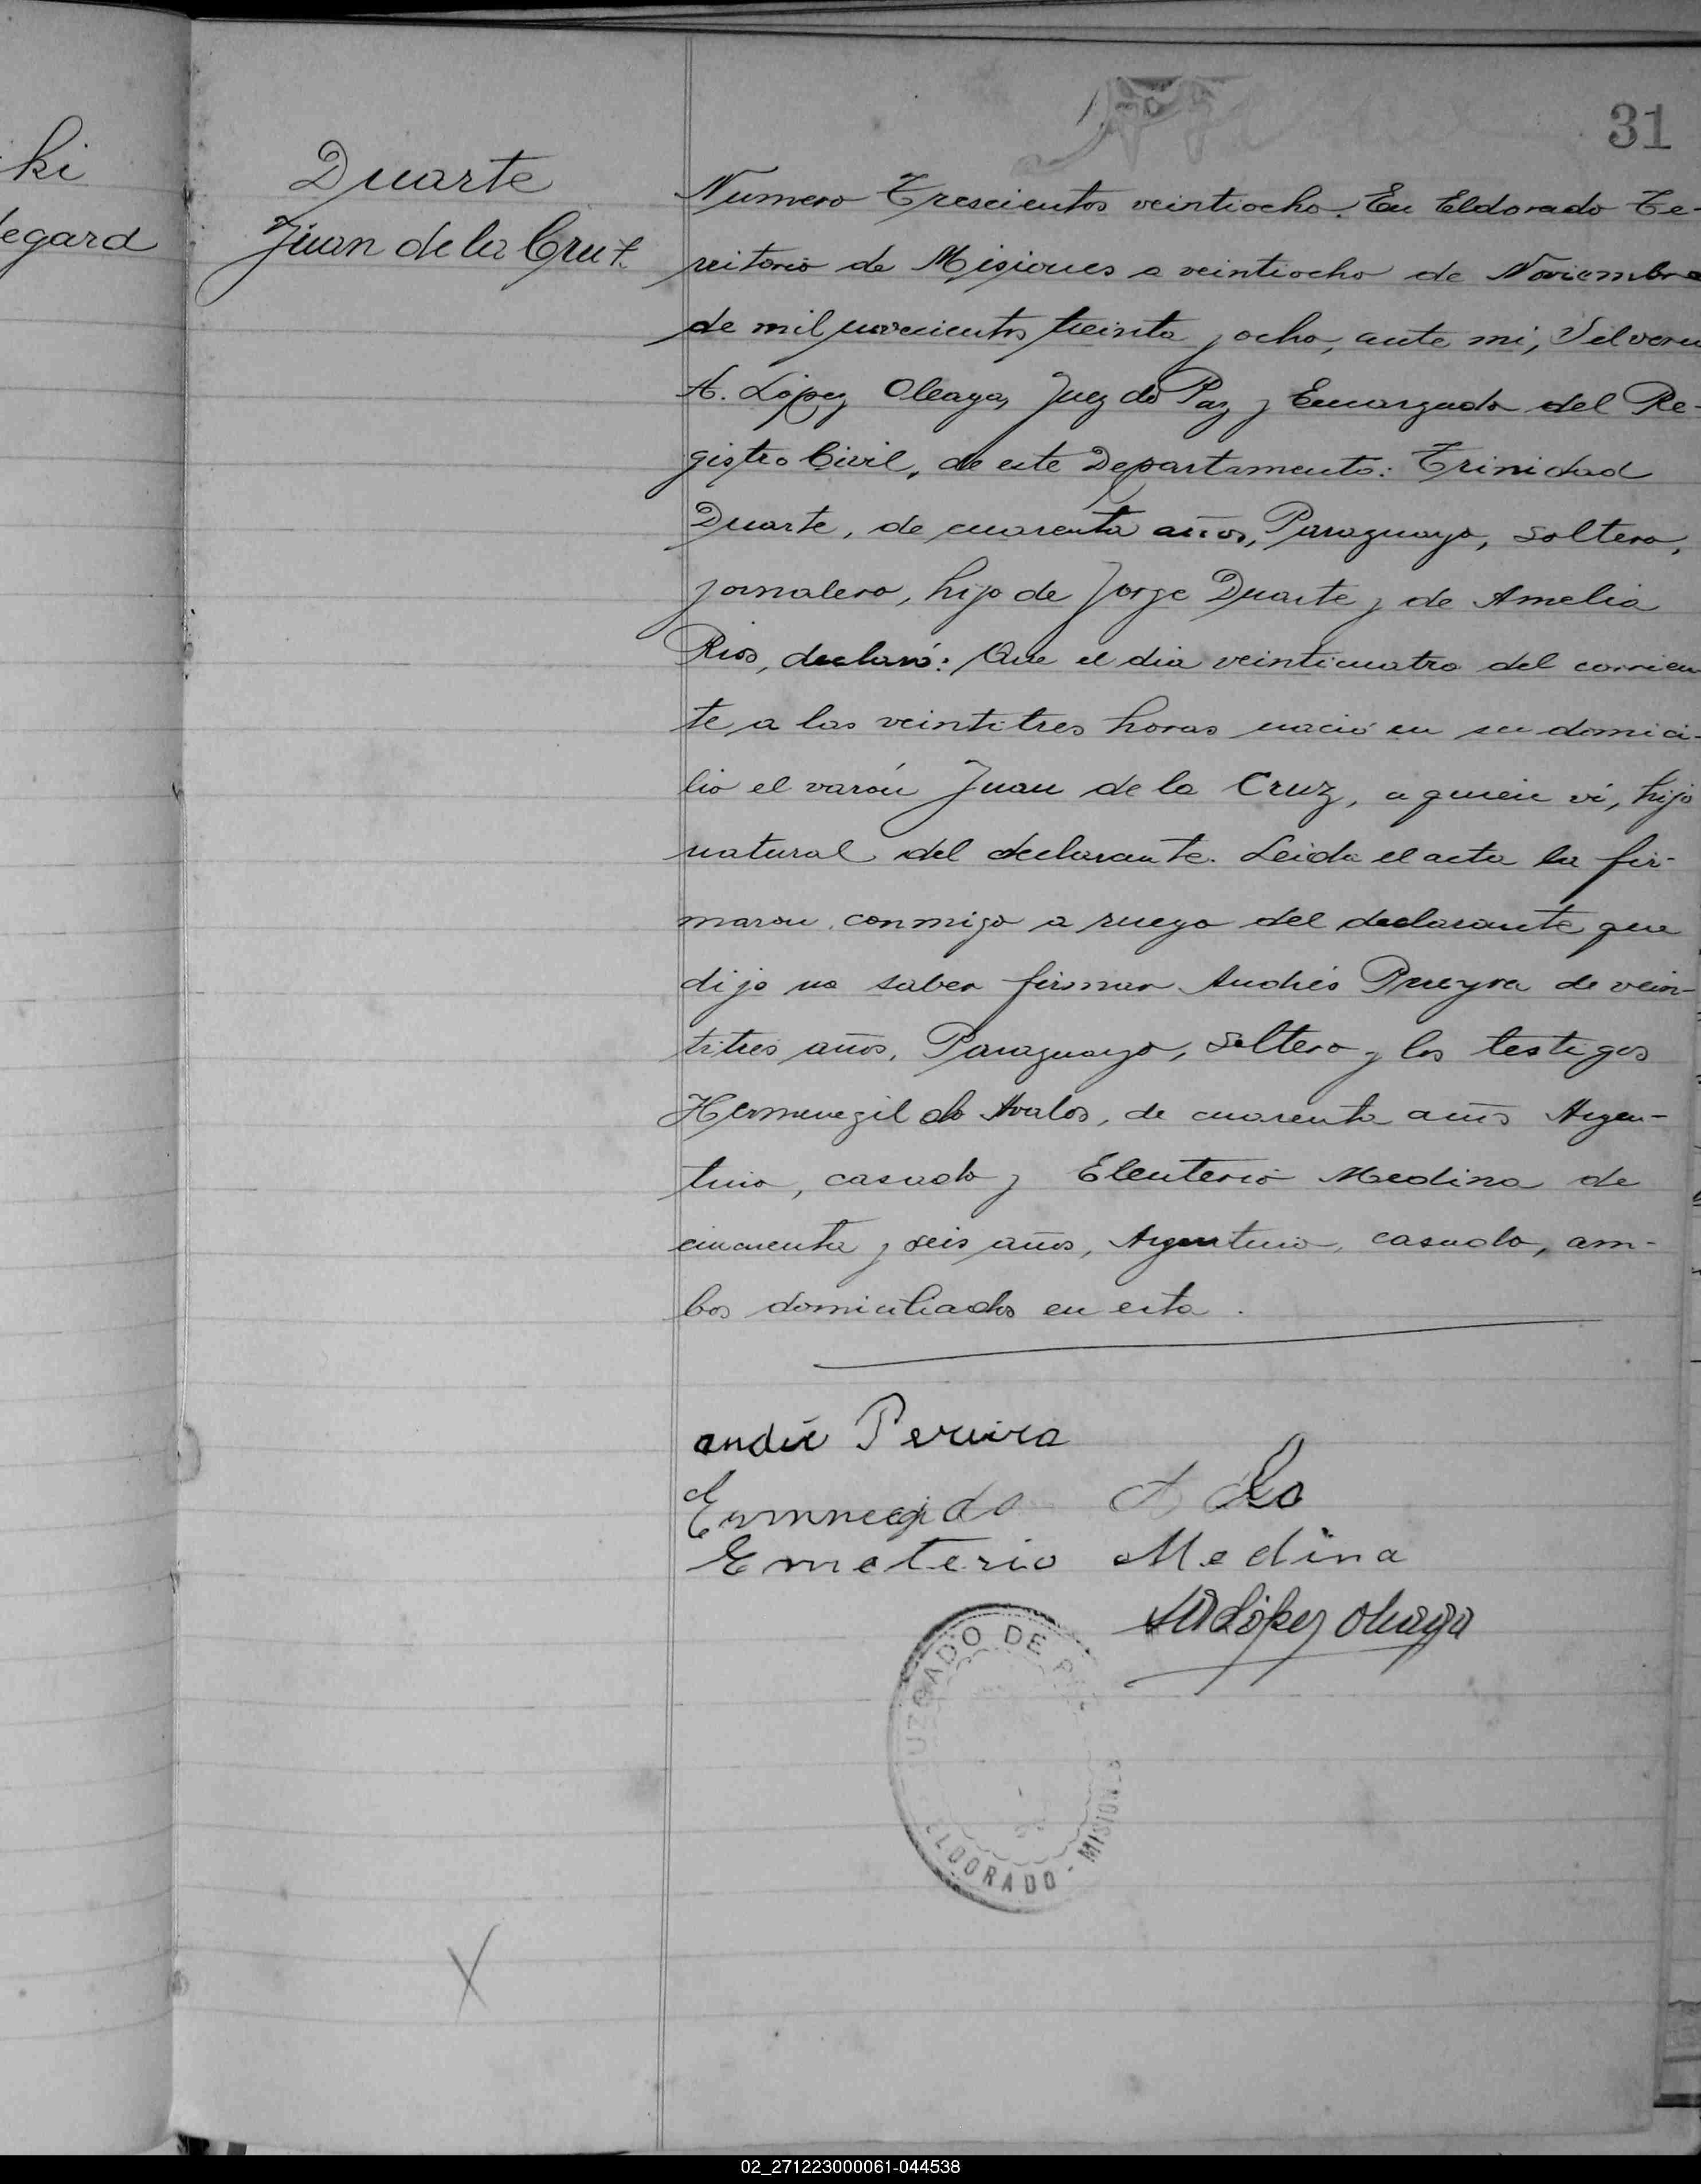 31
ki
egard
Duarte
Juan de la Cruz
Numero Trescientos veintiocho. En Eldorado Te-
rritorio de Misiones a veintiocho de Noviembre
de mil novecientos treinta y ocho, ante mi, Silverio
A. López Oleaga, Juez de Paz y Encargado del Re-
gistro Civil, de este Departamento: Trinidad
Duarte, de cuarenta años, Paraguayo, soltero,
jornalero, hijo de Jorge Duarte y de Amelia
Rios, declaró: Que el dia veinticuatro del corrien
te a las veintitres horas nació en su domici-
lio el varón Juan de la Cruz, a quien ví, hijo
natural del declarante. Leida el acta la fir-
maron conmigo a ruego del declarante que
dijo no saber firmar Andrés Pereyra de vein-
titres años, Paraguayo, soltero y los testigos
Hermenegildo Avalos, de cuarenta años Argen-
tino, casado y Eleuterio Medina de
cincuenta y seis años, Argentino, casado, am-
bos domiciliados en esta.
andré Pereira
Emeterio Medina
López Oleaga
JUZGADO DE PAZ
ELDORADO - MISIONES
02_271223000061-044538